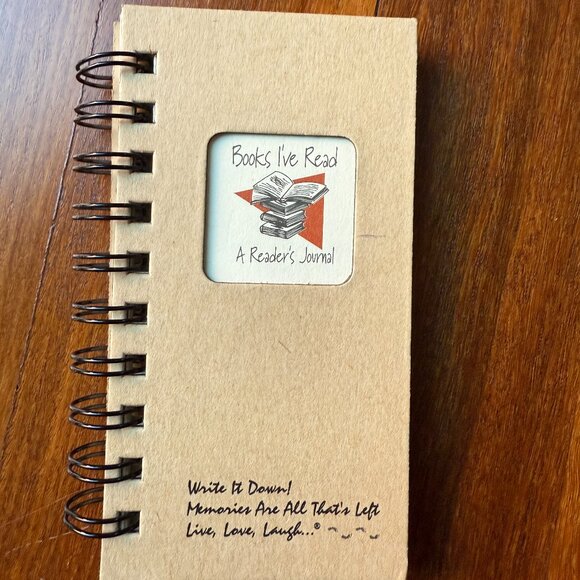 Books I've Read
A Reader's Journal
Write It Down!
Memories Are All That's Left
Live, Love, Laugh...®